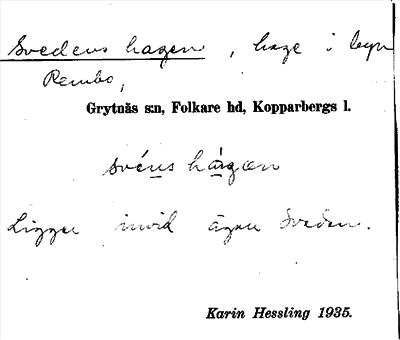 Svedens hagen, hage i byn
Rembo,
Grytnäs s:n, Folkare hd, Kopparbergs l.
svéns hágæn
Ligger invid ägan Sveden.
Karin Hessling 1935.